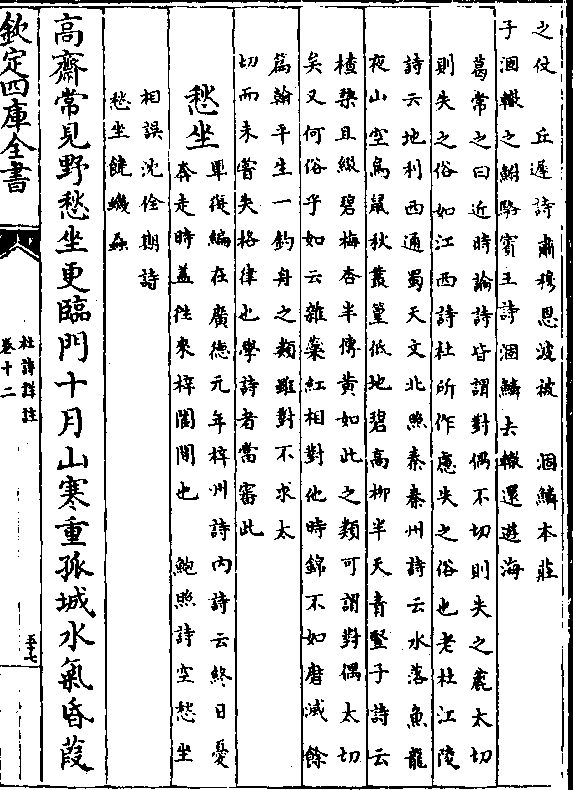 之仗　丘遲詩肅穆恩波被　涸鱗本莊
子涸轍之鮒駱賓王詩涸鱗去轍還遊海
葛常之曰近時論詩皆謂對偶不切則失之麄太切
則失之俗如江西詩社所作慮失之俗也老杜江陵
詩云地利西通蜀天文北照秦秦州詩云水落魚龍
夜山空鳥鼠秋叢篁低地碧高柳半天青竪子詩云
樝棃且綴碧梅杏半傳黄如此之類可謂對偶太切
矣又何俗乎如云雜蘂紅相對他時錦不如磨滅餘
篇翰平生一釣舟之類雖對不求太
切而未嘗失格律也學詩者當審此
愁坐
單復編在廣徳元年梓州詩內詩云終日憂
奔走時蓋徃來梓閬間也　鮑照詩空愁坐
相誤沈佺期詩
愁坐饒蟣蝨
高齋常見野愁坐更臨門十月山寒重孤城水氣昏葭
欽定四庫全書
杜詩詳註
卷十二
五十七